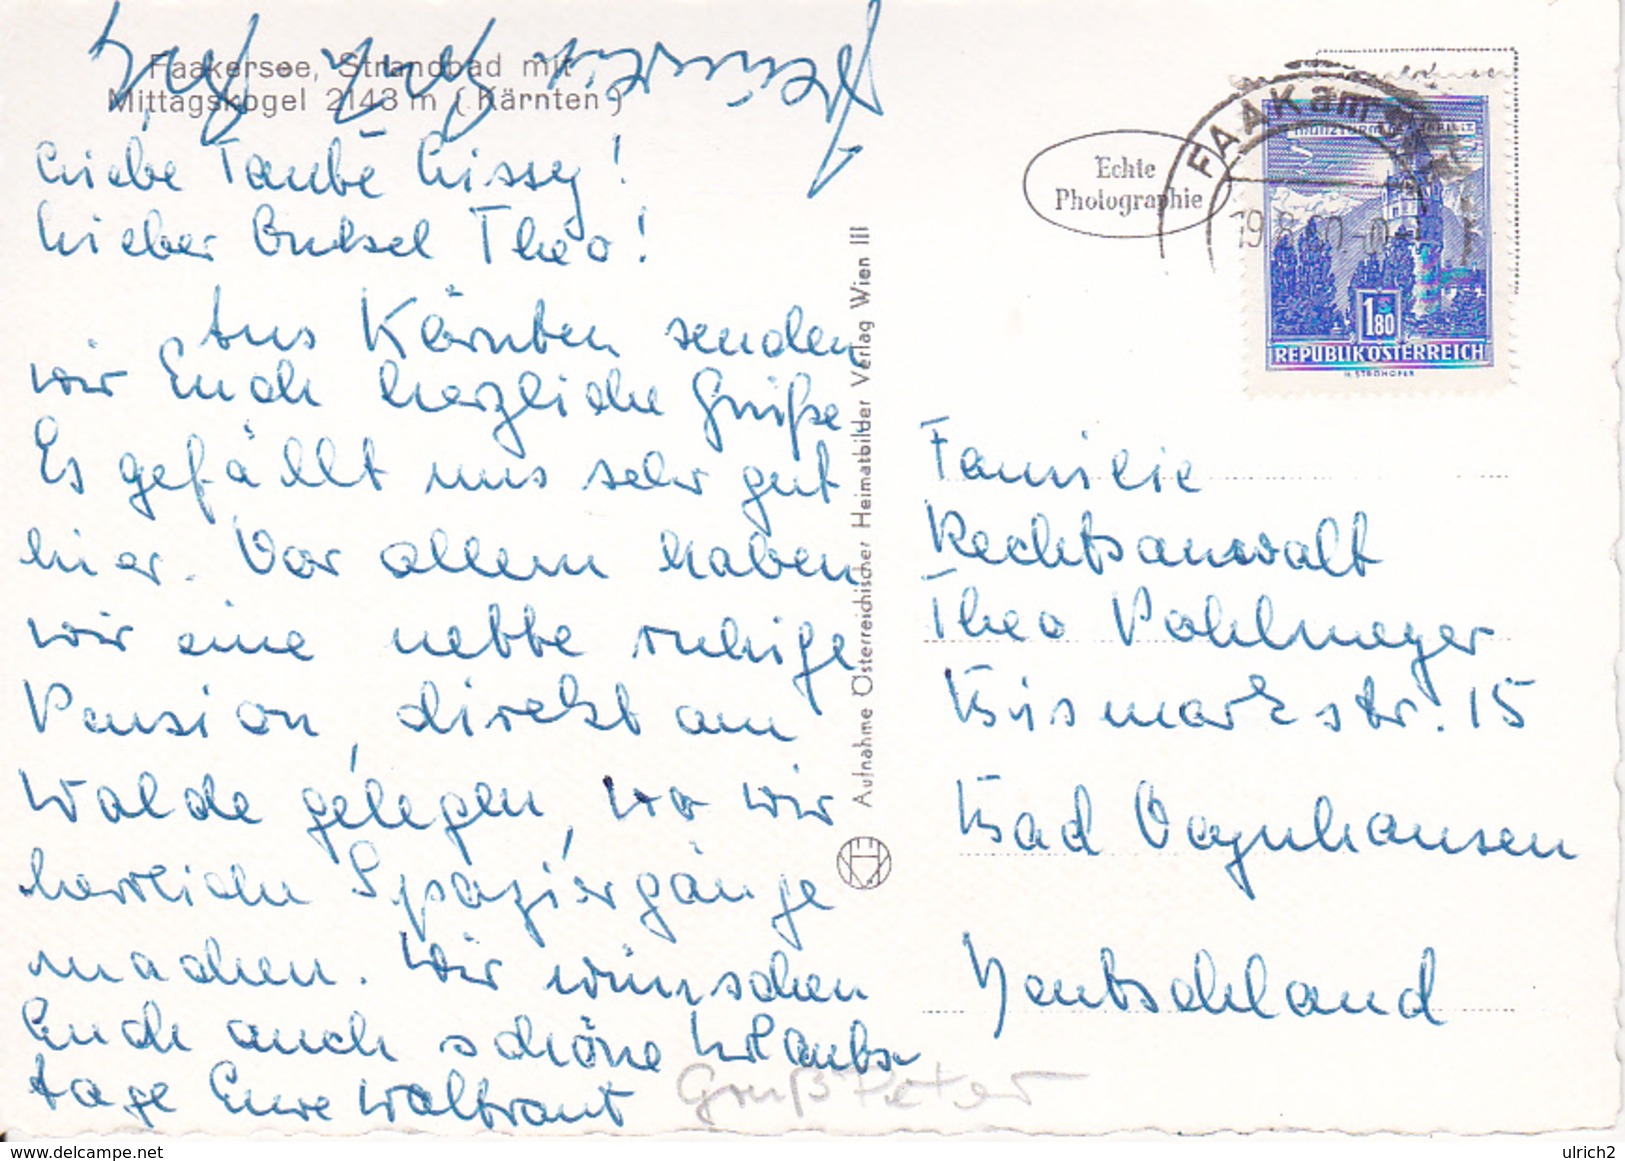 Faakersee, Strandbad mit
Mittagskogel 2143 m (Kärnten)
Liebe Tante Lissy!
Lieber Onkel Theo!
Aus Kärnten senden
wir Euch herzliche Grüße
Es gefällt uns sehr gut
hier. Vor allem haben
wir eine nette ruhige
Pension, direkt am
Walde gelegen, wo wir
herrliche Spaziergänge
machen. Wir wünschen
Euch auch schöne Urlaubs
tage Eure Waltraut
Gruß Peter
Aufnahme Österreichischer Heimatbilder Verlag Wien III
Echte
Photographie
FAAK am
19.8.60
1.80
REPUBLIK ÖSTERREICH
H. STROHOFER
Familie
Rechtsanwalt
Theo Pohlmeyer
Bismarkstr. 15
Bad Oeynhausen
Deutschland
ulrich2